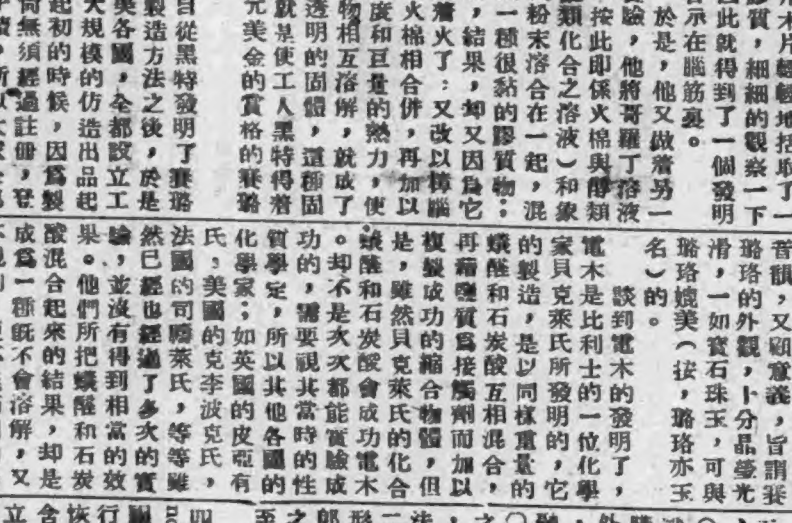 木片輕輕地括取了一
膠質，細細的觀察一下
因此就得到了一個發明
示在腦筋裏。
於是，他又做着另一
驗，他將哥羅丁溶液
按此即係火棉與醇類
類化合之溶液）和象
粉末溶合在一起，混
一種很黏的膠質物；
，結果，却又因爲它
着火了：又改以樟腦
火棉相合併，再加以
度和巨量的熱力，使
物相互溶解，就成了
透明的固體，這種固
就是使工人黑特得着
元美金的賞格的賽璐
自從黑特發明了賽璐
製造方法之後，於是
各國，全都設立工
大規模的仿造出品起
起初的時候，因爲製
無須經過註冊，
音韻，又顧意義，旨謂賽
璐珞的外觀，十分晶瑩光
滑，一如寶石珠玉，可與
璐珞媲美（按，璐珞亦玉
名）的。
談到電木的發明了，
電木是比利士的一位化學
家貝克萊氏所發明的，它
的製造，是以同樣重量的
蟻醛和石炭酸互相混合，
再藉鹽質爲接觸劑而加以
複製成功的縮合物體，但
是，雖然貝克萊氏的化合
蟻醛和石炭酸會成功電木
。却不是次次都能實驗成
功的，需要視其當時的性
質學定，所以其他各國的
化學家；如英國的皮亞有
氏，美國的克李波克氏，
法國的司膳萊氏，等等雖
然已經也經過了多次的實
驗，並沒有得到相當的效
果。他們所把蟻醛和石炭
酸混合起來的結果，却是
成爲一種既不會溶解，又